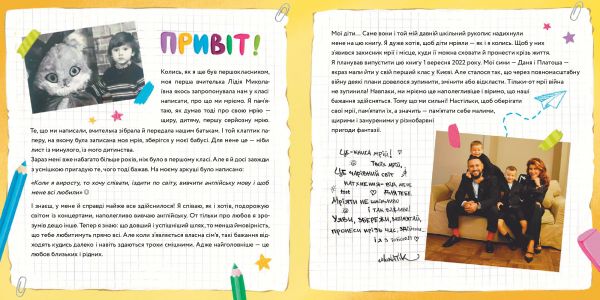 ПРИВІТ!
Колись, як я був першокласником,
моя перша вчителька Лідія Микола-
ївна якось запропонувала нам у класі
написати, про що ми мріємо. Я пам'я-
таю, як думаю тоді про свою мрію —
щиру, дитячу, першу серйозну мрію.
Те, що ми написали, вчителька зібрала й передала нашим батькам. І той клаптик па-
перу, на якому була записана моя мрія, зберігся у моєї бабусі. Для мене це — ніби
лист із минулого, із мого дитинства.
Зараз мені вже набагато більше років, ніж було в першому класі. Але я й досі завжди
з усмішкою пригадую те, чого тоді бажав. На моєму аркуші було написано:
«Коли я виросту, то хочу співати, їздити по світу, вивчити англійську мову і щоб
мене всі любили»
І знаєш, у мене й справді майже все здійснилося! Я співаю, як і хотів, подорожую
світом із концертами, наполегливо вивчаю англійську. От тільки про любов я зрозу-
мів дещо інше. Тепер я знаю: що довший і успішніший шлях, то менша ймовірність,
що тебе любитимуть прямо всі. Але коли з'являється власна сім'я, такі бажання від-
ходять кудись далеко і навіть здаються трохи смішними. Адже найголовніше — це
любов близьких і рідних.
Мої діти... Саме вони і той мій давній шкільний рукопис надихнули
мене на цю книгу. Я дуже хотів, щоб діти мріяли — як і я колись. Щоб у них
з'явився захисник мрії і місце, куди її можна сховати й пронести крізь життя.
Я планував випустити цю книгу 1 вересня 2022 року. Мої сини — Даня і Платоша —
якраз мали йти у свій перший клас у Києві. Але сталося так, що через повномасштабну
війну деякі плани довелося зупинити, змінити або відкласти. Тільки-от мрії війна
не зупинила! Навпаки, ми мріємо ще наполегливіше і віримо, що наші
бажання здійсняться. Тому що ми сильні! Настільки, щоб оберігати
свої мрії, пам'ятати їх, а значить — пам'ятати себе малими,
щирими і зануреними у різнобарвні
пригоди фантазії.
Це — книга мрій!
Твоїх мрій,
Це чарівний світ
натхнення — від мене
для тебе.
Мріяти не шкідливо
і так важливо!
Уяви, збережи,
пронеси крізь час,